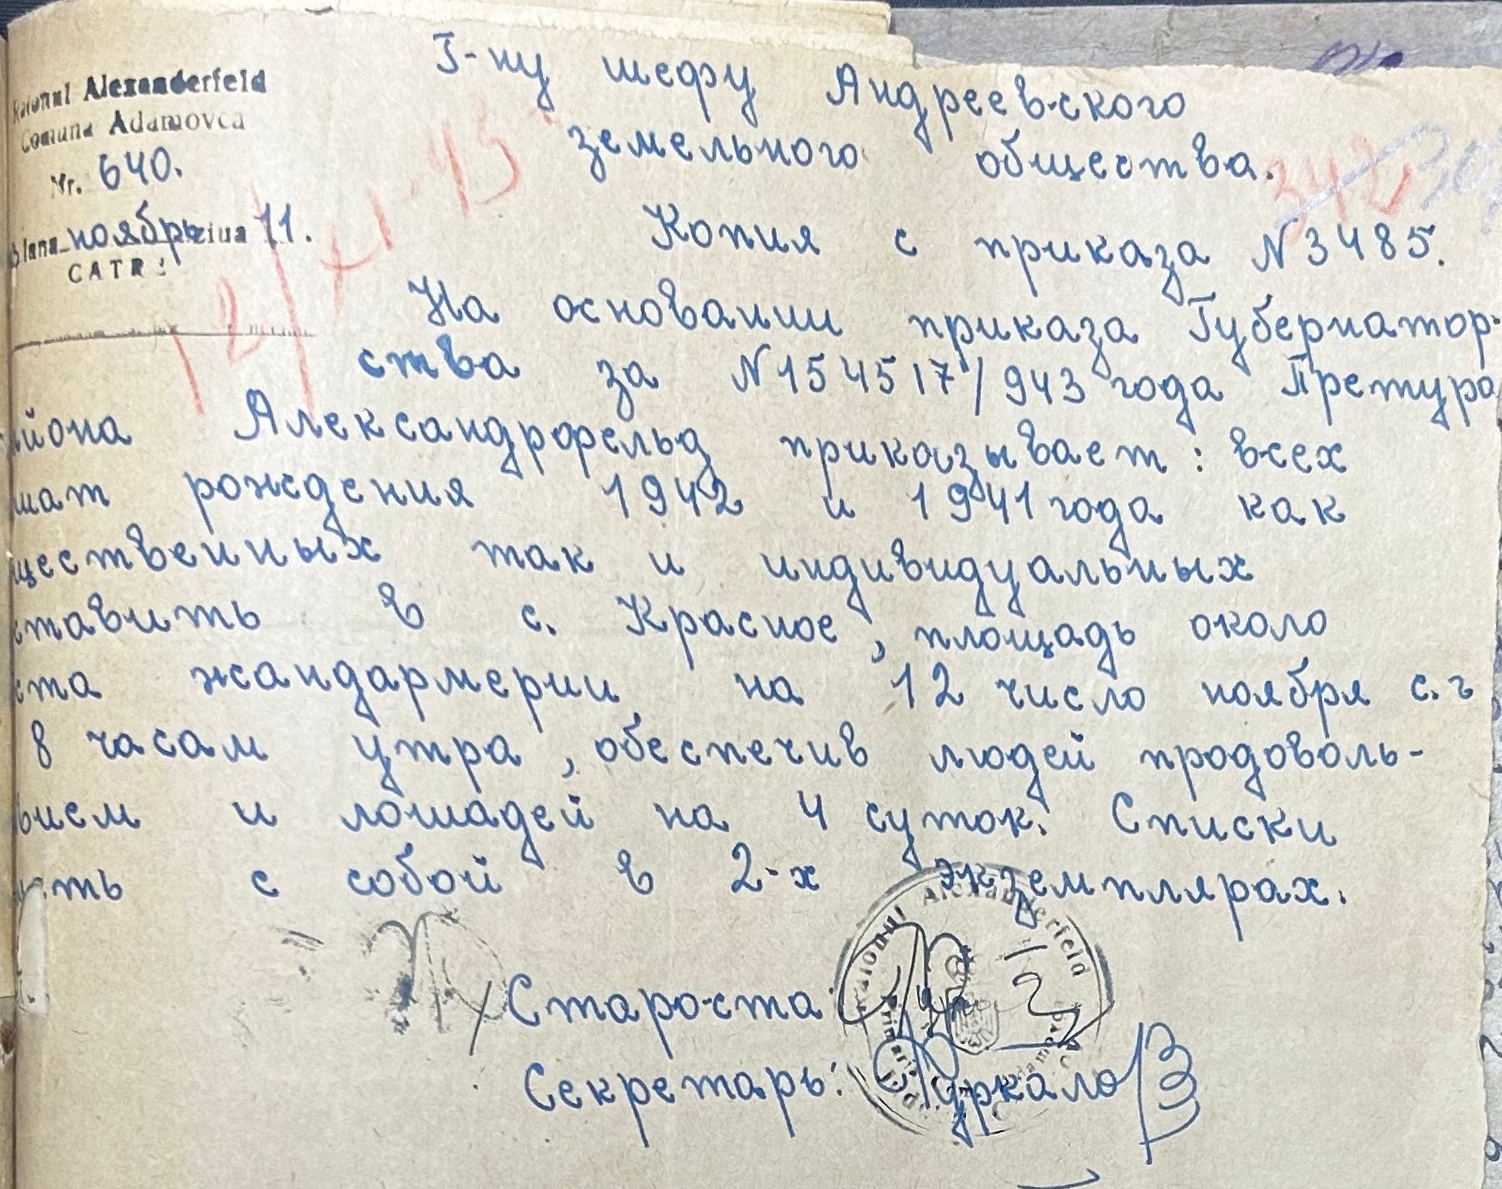 Raionul Alexanderfeld
Comuna Adamovca
Nr. 640.
Iana ноябрь ziua 11.
CATRE
12/XI-43
Г-ну шефу Андреевского
земельного общества.
342
Копия с приказа N 3485.
На основании приказа Губернатор-
ства за N 154517/943 года Претура
айона Александрофельд приказывает: всех
шат рождения 1942 и 1941 года как
щественных так и индивидуальных
ставить в с. Красное, площадь около
ста жандармерии, на 12 число ноября с.г
8 часам утра, обеспечив людей продоволь-
вием и лошадей на 4 суток. Списки
ять с собой в 2-х экземплярах.
Raionul Alexanderfeld
Староста
Секретарь: Чуркало